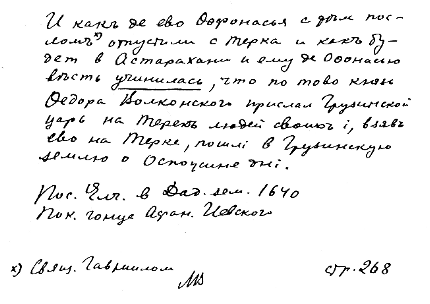 И какъ де ево Офонасья с дьякомъ пос-
ломъ х) отпустили с Терка и какъ бу-
дет в Астарахани и ему де Офонасью
вѣсть учинилась, что по тово князь
Федора Волконского прислал Грузинской
царь на Терекъ людей своихъ i, взявъ
ево на Терке, пошлi в Грузинскую
землю о Оспожине днi.
Пос. Ел. в Дад. зем. 1640
Под. гонца Афан. Иевского
х) Свящ. Гавриилом
стр. 268